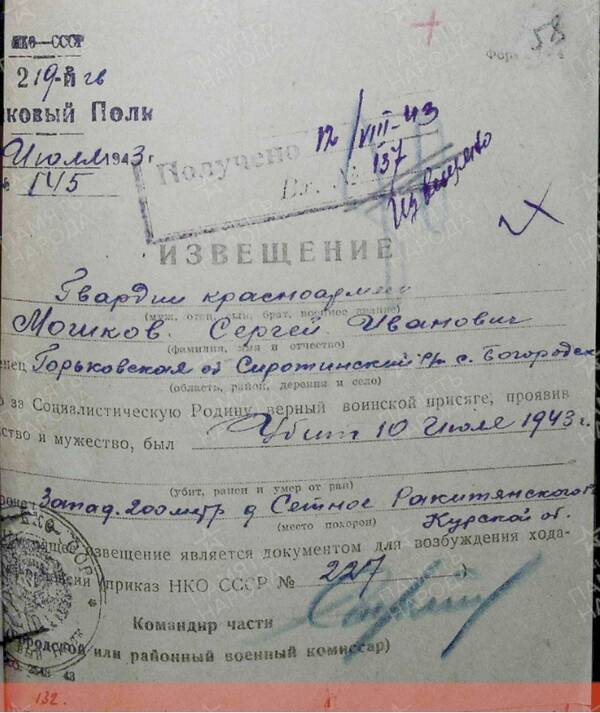 НКО—СССР
58
219-й гв
ковый Полк
Июля 1943 г.
№ 145
Получено 12/VIII-43
Вх. № 137
ИЗВЕЩЕНИЕ
Гвардии красноармеец
(муж, отец, сын, брат, военное звание)
Мошков Сергей Иванович
(фамилия, имя и отчество)
енец Горьковская об Сиротинский р/н с. Богородск
(область, район, деревня и село)
о за Социалистическую Родину, верный воинской присяге, проявив
ство и мужество, был Убит 10 Июля 1943 г.
(убит, ранен и умер от ран)
Запад. 200 метр д Сетное Ракитянского
(место похорон) Курской об.
извещение является документом для возбуждения хода-
(приказ НКО СССР № 227)
Командир части
ородской или районный военный комиссар)
132.
ПАМЯТЬ НАРОДА